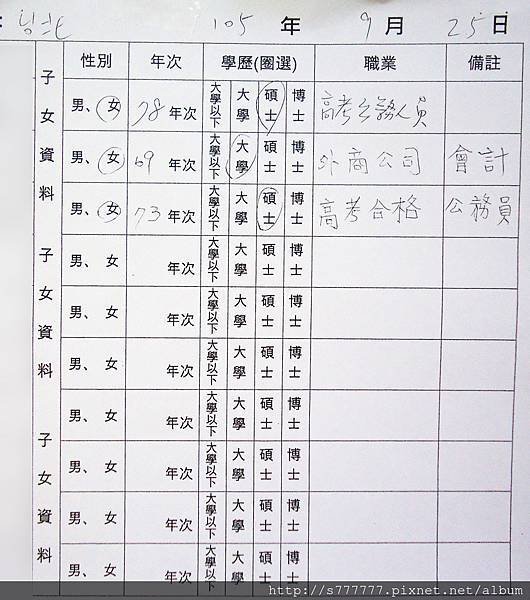 105 年 9 月 25 日
性別 年次 學歷(圈選) 職業 備註
子女資料
男、女 78 年次 大學以下 大學 碩士 博士 高考公務人員
男、女 69 年次 大學以下 大學 碩士 博士 外商公司 會計
男、女 73 年次 大學以下 大學 碩士 博士 高考合格 公務員
子女資料
男、女 年次 大學以下 大學 碩士 博士
男、女 年次 大學以下 大學 碩士 博士
男、女 年次 大學以下 大學 碩士 博士
男、女 年次 大學以下 大學 碩士 博士
子女資料
男、女 年次 大學以下 大學 碩士 博士
男、女 年次 大學以下 大學 碩士 博士
男、女 年次 大學以下 大學 碩士 博士
http://s777777.pixnet.net/album